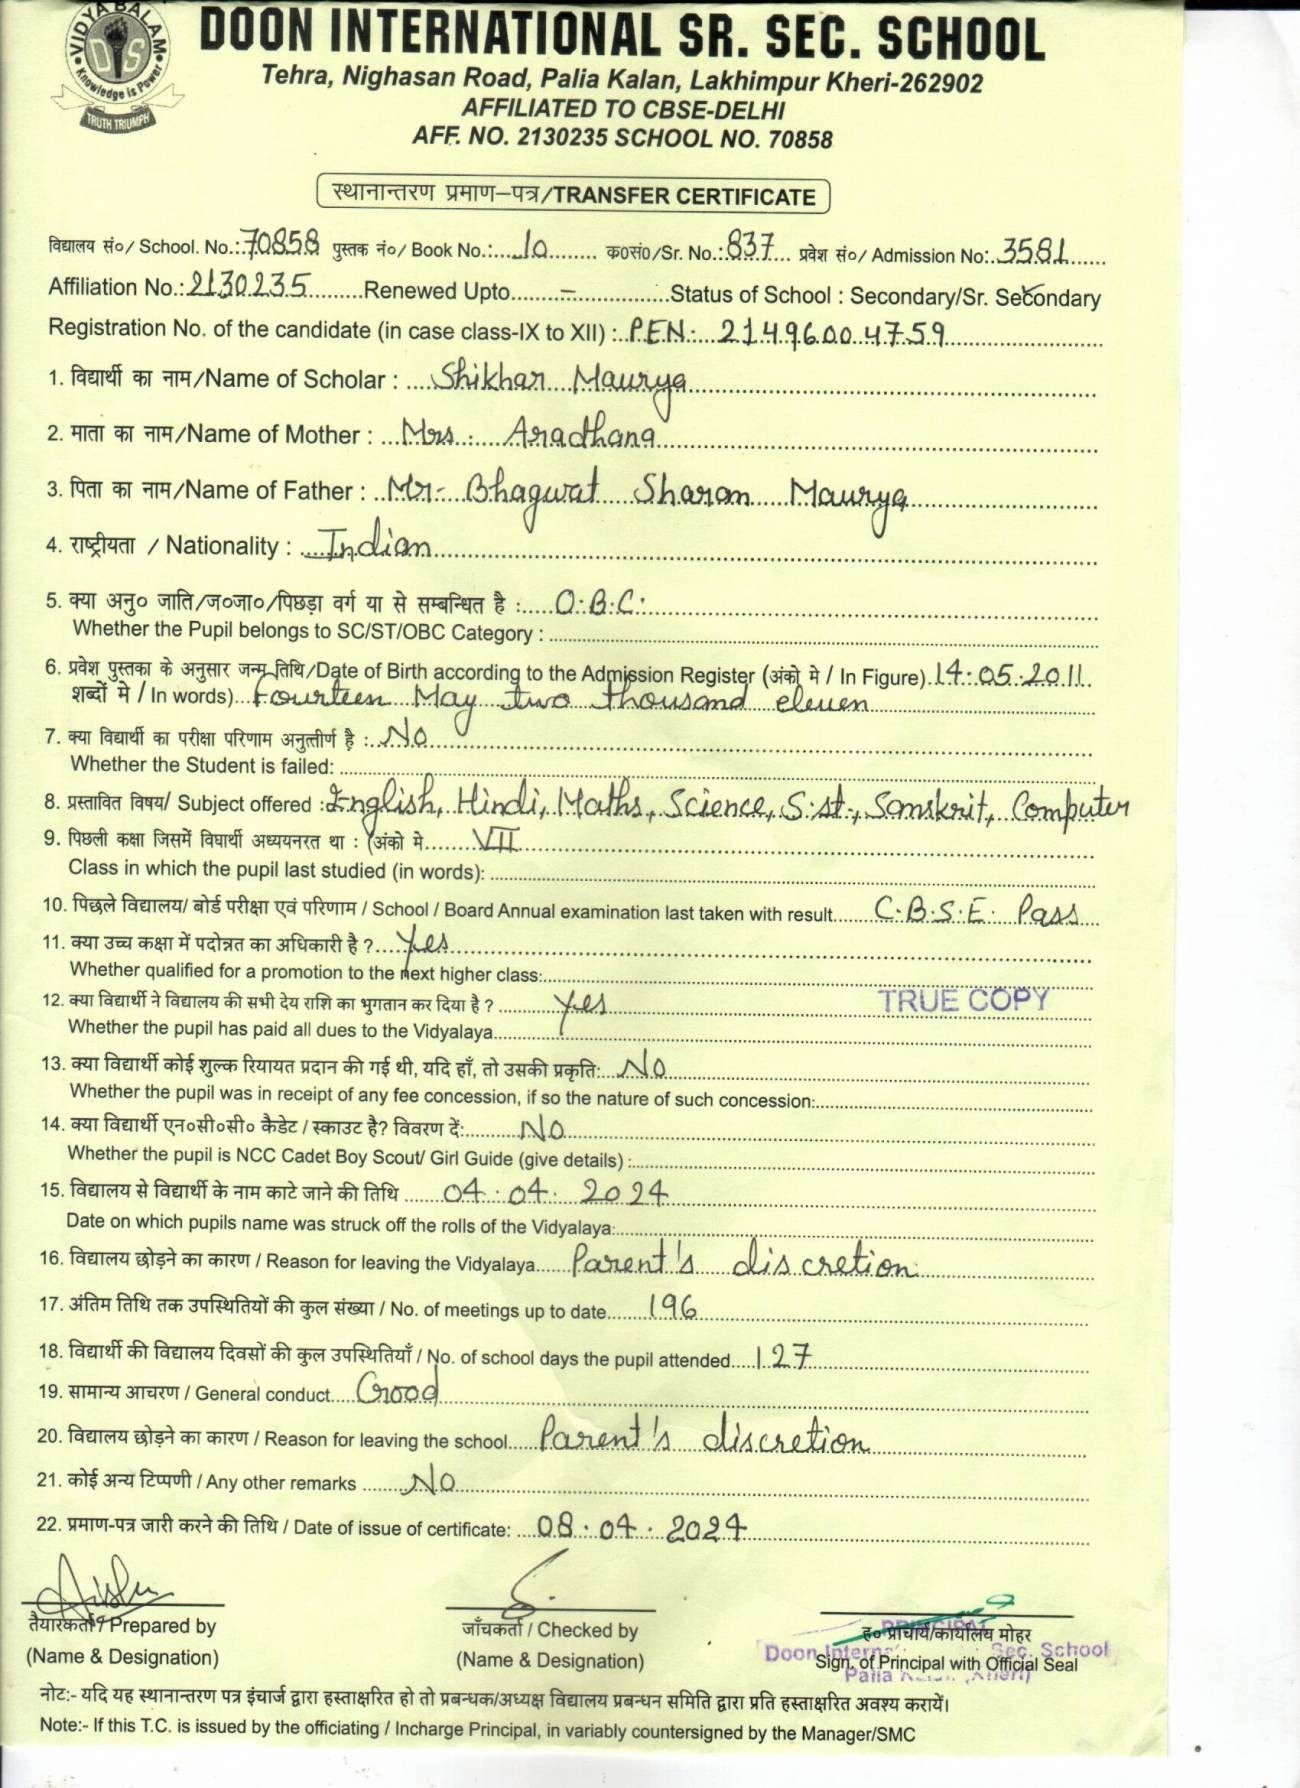 VIDYA BALAM
DS
Knowledge is Power
TRUTH TRIUMPH
DOON INTERNATIONAL SR. SEC. SCHOOL
Tehra, Nighasan Road, Palia Kalan, Lakhimpur Kheri-262902
AFFILIATED TO CBSE-DELHI
AFF. NO. 2130235 SCHOOL NO. 70858
स्थानान्तरण प्रमाण–पत्र/TRANSFER CERTIFICATE
विद्यालय सं०/ School. No.: 70858 पुस्तक नं०/ Book No.: 10 क०सं०/Sr. No.: 837 प्रवेश सं०/ Admission No: 3581
Affiliation No.: 2130235 Renewed Upto – Status of School : Secondary/Sr. Secondary
Registration No. of the candidate (in case class-IX to XII) : PEN: 21496004759
1. विद्यार्थी का नाम/Name of Scholar : Shikhar Maurya
2. माता का नाम/Name of Mother : Mrs. Aradhana
3. पिता का नाम/Name of Father : Mr. Bhagwat Sharan Maurya
4. राष्ट्रीयता / Nationality : Indian
5. क्या अनु० जाति/ज०जा०/पिछड़ा वर्ग या से सम्बन्धित है : O.B.C.
Whether the Pupil belongs to SC/ST/OBC Category :
6. प्रवेश पुस्तका के अनुसार जन्म तिथि/Date of Birth according to the Admission Register (अंको मे / In Figure) 14.05.2011
शब्दों मे / In words) Fourteen May two thousand eleven
7. क्या विद्यार्थी का परीक्षा परिणाम अनुत्तीर्ण है : No
Whether the Student is failed:
8. प्रस्तावित विषय/ Subject offered : English, Hindi, Maths, Science, S.st., Sanskrit, Computer
9. पिछली कक्षा जिसमें विघार्थी अध्ययनरत था : (अंको मे VII
Class in which the pupil last studied (in words):
10. पिछले विद्यालय/ बोर्ड परीक्षा एवं परिणाम / School / Board Annual examination last taken with result C.B.S.E. Pass
11. क्या उच्च कक्षा में पदोन्नत का अधिकारी है ? Yes
Whether qualified for a promotion to the next higher class:
12. क्या विद्यार्थी ने विद्यालय की सभी देय राशि का भुगतान कर दिया है ? Yes TRUE COPY
Whether the pupil has paid all dues to the Vidyalaya
13. क्या विद्यार्थी कोई शुल्क रियायत प्रदान की गई थी, यदि हाँ, तो उसकी प्रकृति: No
Whether the pupil was in receipt of any fee concession, if so the nature of such concession:
14. क्या विद्यार्थी एन०सी०सी० कैडेट / स्काउट है? विवरण दें: No
Whether the pupil is NCC Cadet Boy Scout/ Girl Guide (give details) :
15. विद्यालय से विद्यार्थी के नाम काटे जाने की तिथि 04.04.2024
Date on which pupils name was struck off the rolls of the Vidyalaya:
16. विद्यालय छोड़ने का कारण / Reason for leaving the Vidyalaya Parent's discretion
17. अंतिम तिथि तक उपस्थितियों की कुल संख्या / No. of meetings up to date 196
18. विद्यार्थी की विद्यालय दिवसों की कुल उपस्थितियाँ / No. of school days the pupil attended 127
19. सामान्य आचरण / General conduct Good
20. विद्यालय छोड़ने का कारण / Reason for leaving the school Parent's discretion
21. कोई अन्य टिप्पणी / Any other remarks No
22. प्रमाण-पत्र जारी करने की तिथि / Date of issue of certificate: 08.04.2024
तैयारकर्ता / Prepared by जाँचकर्ता / Checked by ह० प्राचार्य/कार्यालय मोहर
PRINCIPAL
(Name & Designation) (Name & Designation) Sign. of Principal with Official Seal
Doon Sec. School
Palia
नोट:- यदि यह स्थानान्तरण पत्र इंचार्ज द्वारा हस्ताक्षरित हो तो प्रबन्धक/अध्यक्ष विद्यालय प्रबन्धन समिति द्वारा प्रति हस्ताक्षरित अवश्य करायें।
Note:- If this T.C. is issued by the officiating / Incharge Principal, in variably countersigned by the Manager/SMC